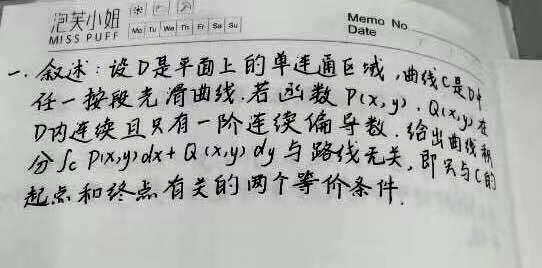 泡芙小姐
MISS PUFF
Mo Tu We Th Fr Sa Su
Memo No.
Date
一. 叙述：设D是平面上的单连通区域，曲线C是D中
任一按段光滑曲线. 若函数 P(x,y), Q(x,y) 在
D内连续且只有一阶连续偏导数. 给出曲线积
分 ∫c P(x,y)dx + Q(x,y)dy 与路线无关，即只与C的
起点和终点有关的两个等价条件.